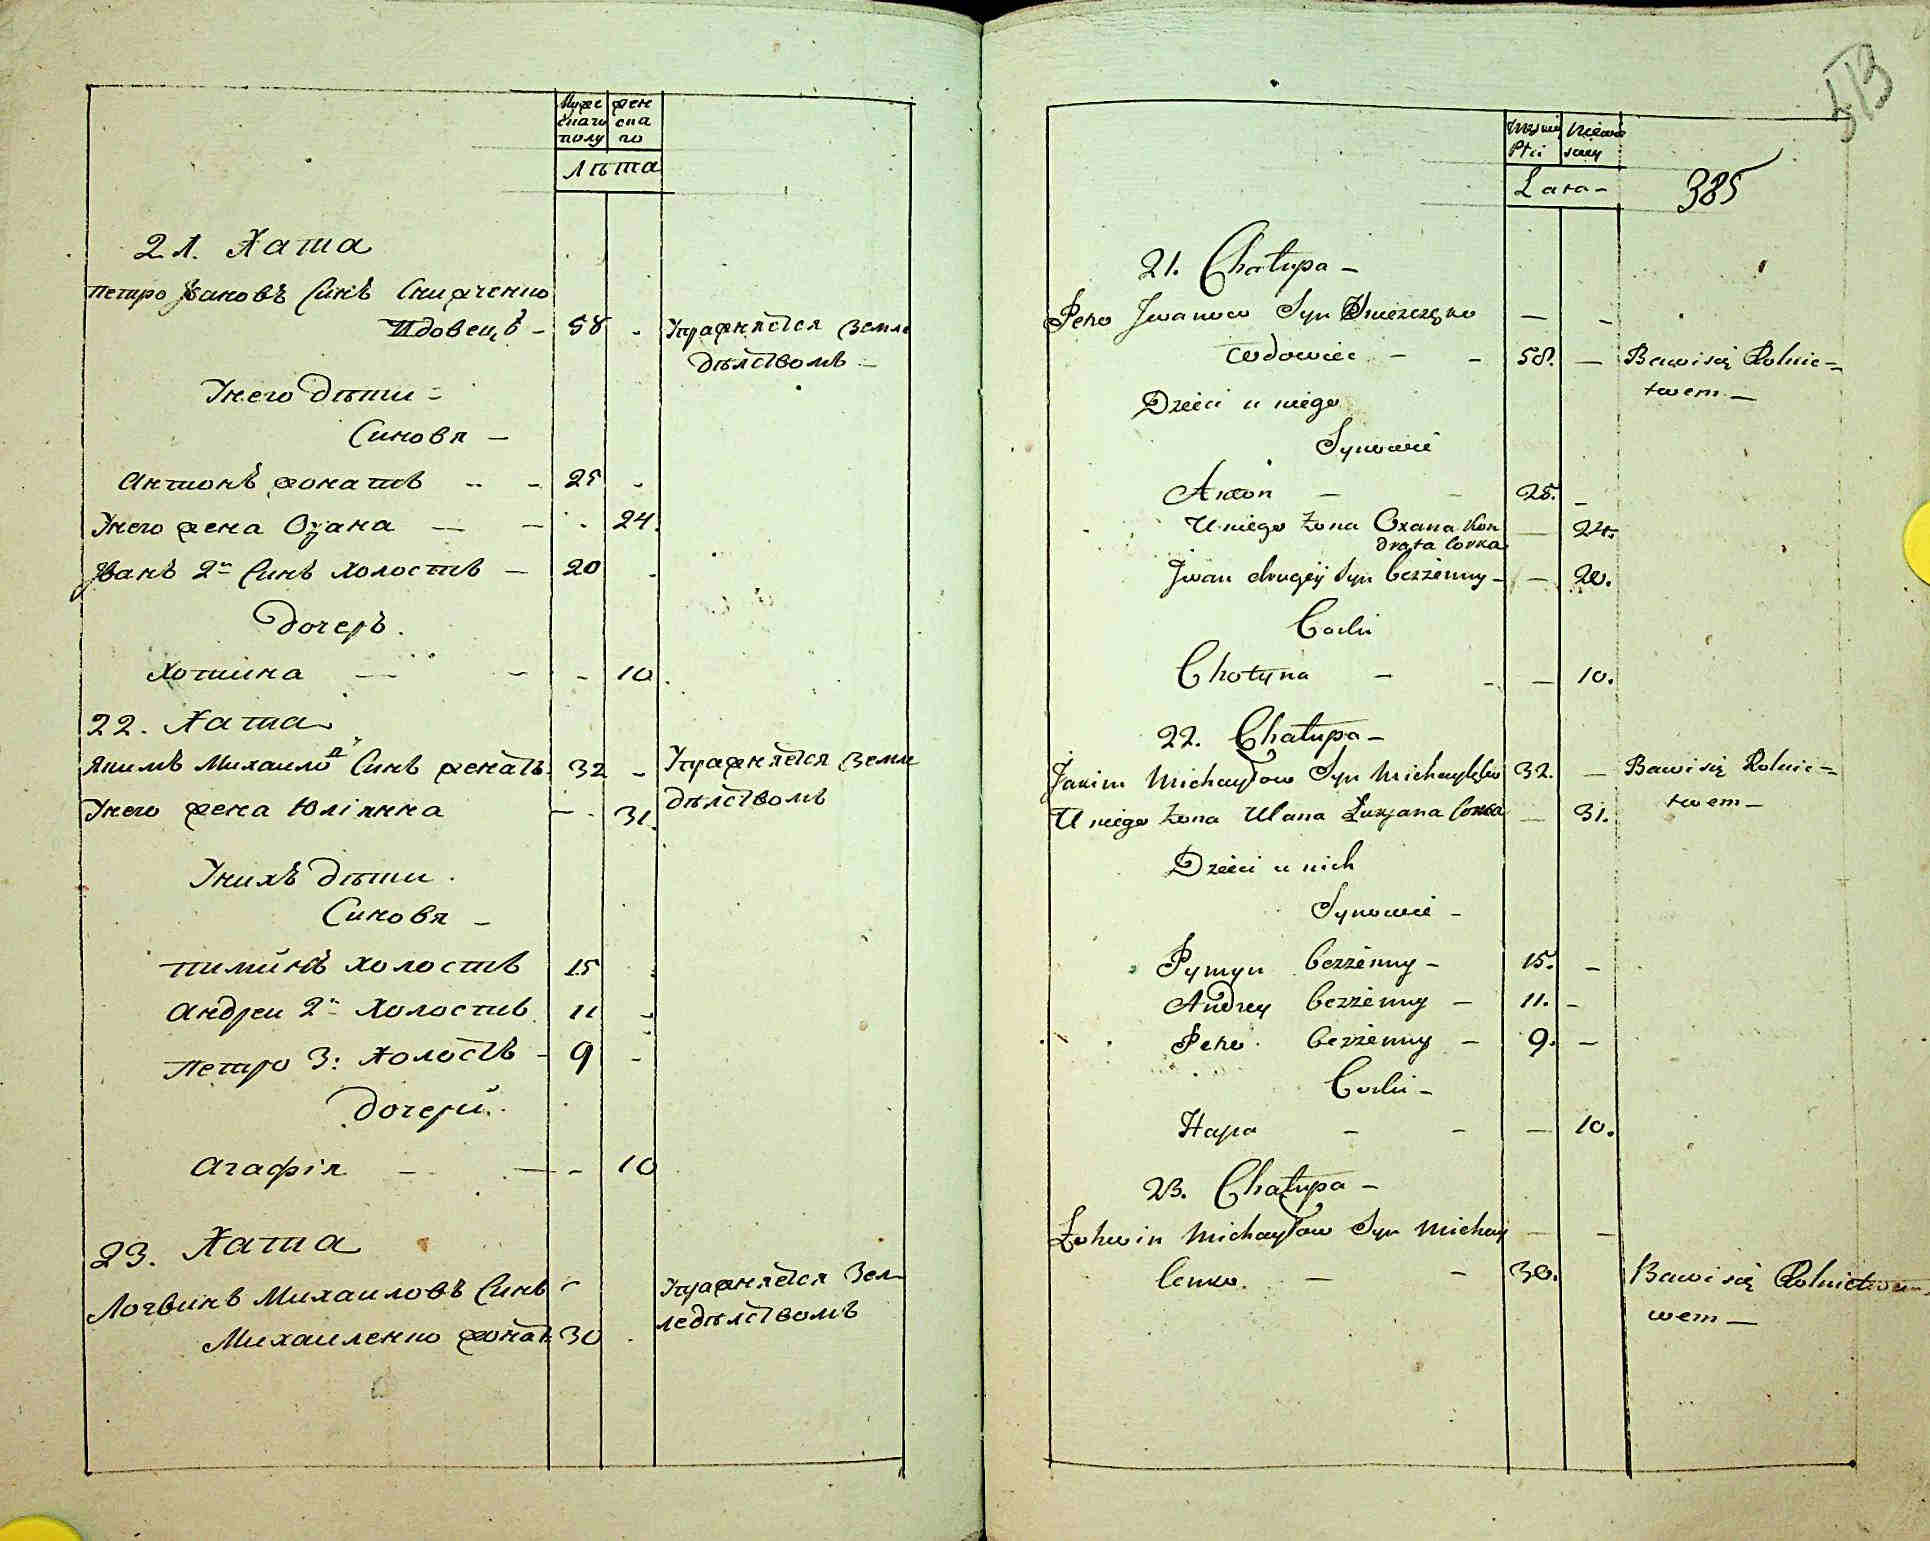 Муже
скаго
полу
жен
ска
го
Лѣта
21. Хата
Петро Јвановъ Синъ
Вдовецъ - 58 - Упражняется Земле
дѣлством -
Унего дѣти -
Синовя -
Антонъ жонатъ - - 25 -
Унего жена Оѯана - - - 24.
Јванъ 2й Синъ холостъ - 20 -
Дочерь.
Хотина - - - 10.
22. Хата
Якимъ Михайло Синъ женатъ. 32 - Упражняется Земле
Унего жена Юліянна - - 31. дѣлством
Унихъ дѣти.
Синовя -
Пимйнъ холостъ 15
Андреи 2й холостъ 11 -
Петро 3: Холостъ - 9 -
Дочери.
Агафія - - - 10
23. Хата
Логвинъ Михаиловъ Синъ - Упражняется Зем
Михаиленко жонат 30 - ледѣлствомъ
513
Lata -
385
21. Chałupa -
Petro Jwanow Syn - -
wdowiec - - 58. - Bawi się Rolnic=
twem -
Dzieci u niego
Synowie
Anton - - 25. -
U niego żona Oxana Kon - 24.
drata Corka
Jwan drugiy Syn bezżenny - - 20.
Corki
Chotyna - - - 10.
22. Chałupa -
Jakim Michayłow Syn 32. - Bawi się Rolnic=
U niego żona Ulana Łukjana Corka - 31. twem -
Dzieci u nich
Synowie -
Pymyn bezżenny - 15. -
Andrey bezżenny - 11. -
Petro bezżenny - 9. -
Corki -
Hapa - - - 10.
23. Chałupa -
Łohwin Michayłow Syn Michay - -
lenko. - - 30. Bawi się
wem -